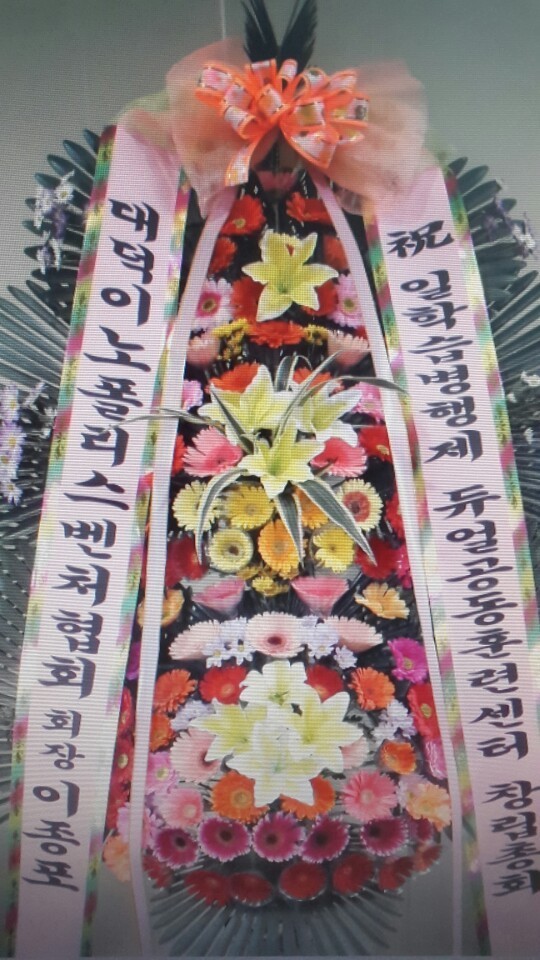 대덕이노폴리스벤처협회 회장 이종포
祝 일학습병행제 듀얼공동훈련센터 창립총회